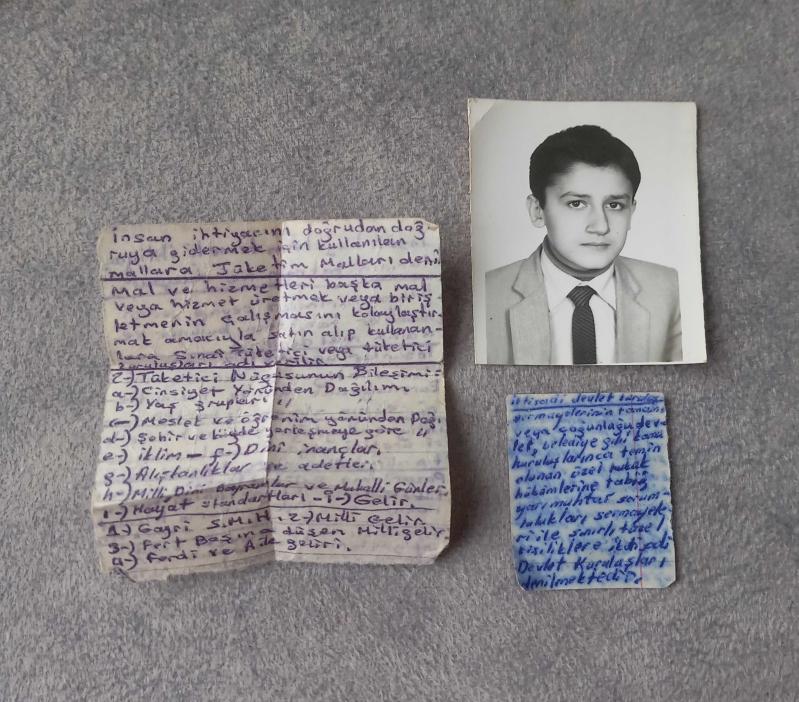 insan ihtiyacını doğrudan doğ-
ruya gidermek için kullanılan
mallara Tüketim Malları deni.
Mal ve hizmetleri başka mal
veya hizmet üretmek veya biriş-
letmenin Çalışmasını kolaylaştır-
mak amacıyla satın alıp kullanan-
lara Sınai tüketici veya tüketici
kuruluşları adı verilir.
2-) Tüketici Nüfusunun Bileşimi:
a-) Cinsiyet Yönünden Dağılımı
b-) Yaş grupları "
c-) Meslek ve öğrenim yönünden Dağ.
d-) Şehir ve köyde yerleşmeye göre "
e-) iklim - f-) Dini inançlar.
g-) Alışkanlıklar ve adetler.
h-) Milli, Dini bayramlar ve Mahalli Günler.
ı-) Hayat standartları - i-) Gelir.
1-) Gayri S.M.H. 2-) Milli Gelir
3-) Fert Başına düşen Milli gelir
4-) Ferdi ve Aile geliri.
iktisadi devlet
sermayelerinin tamamı
veya çoğunluğu dev-
let, belediye gibi kamu
kuruluşlarınca temin
olunan özel hukuk
hükümlerine tabi
yarı muhtar sorum-
lulukları sermayele-
ri ile sınırlı tüzel
kişiliklere iktisadi
Devlet Kuruluşları
denilmektedir.